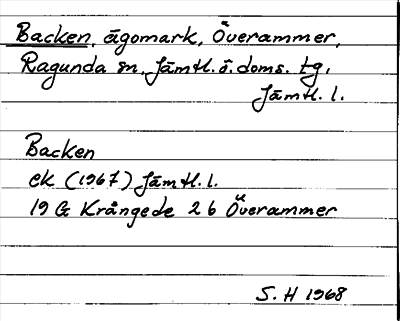 Backen, ägomark, Överammer,
Ragunda sn, Jämtl. ö. doms. tg,
Jämtl. l.
Backen
ek (1967) Jämtl. l.
19 G Krångede 2 b Överammer
S. H 1968